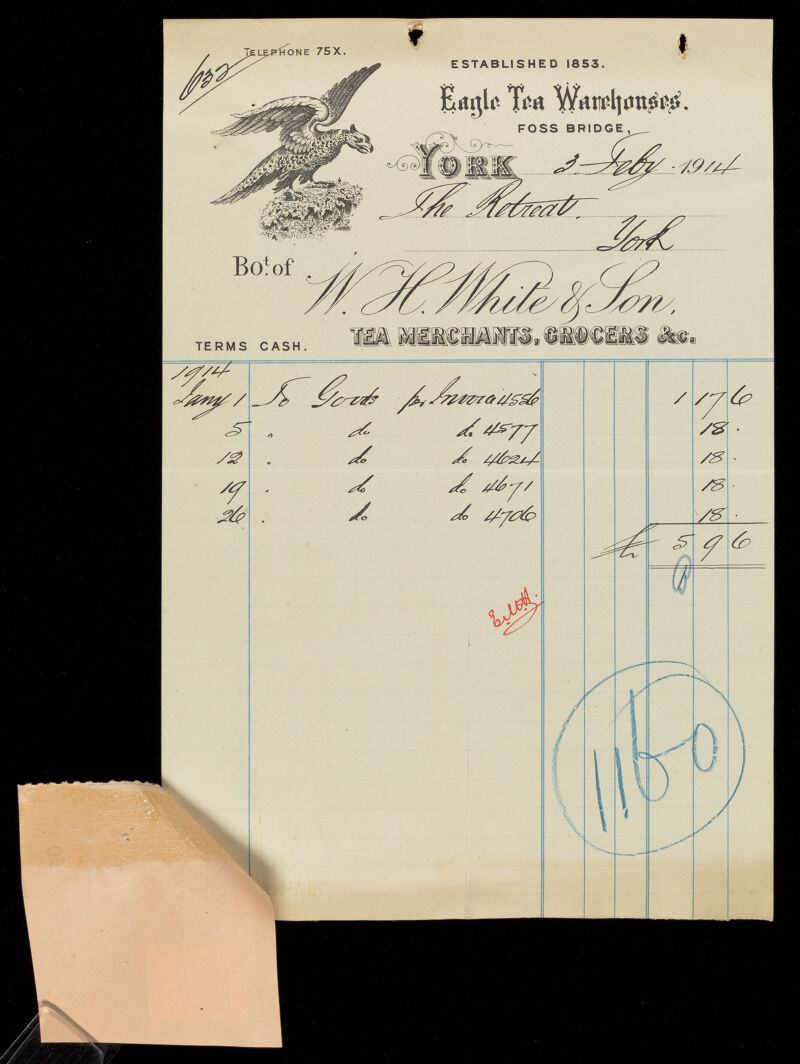 TELEPHONE 75X.
632
ESTABLISHED 1853.
Eagle Tea Warehouses.
FOSS BRIDGE,
YORK 3 Feby 1914
The Retreat.
York
Bot. of
W. H. White & Son,
TEA MERCHANTS, GROCERS &c.
TERMS CASH.
1914
Jany 1 To Goods per Invoice 4556 1 17 6
5 " do do 4577 18 .
12 " do do 4624 18 .
19 " do do 4671 18 .
26 " do do 4706 18 .
£ 5 9 6
1160